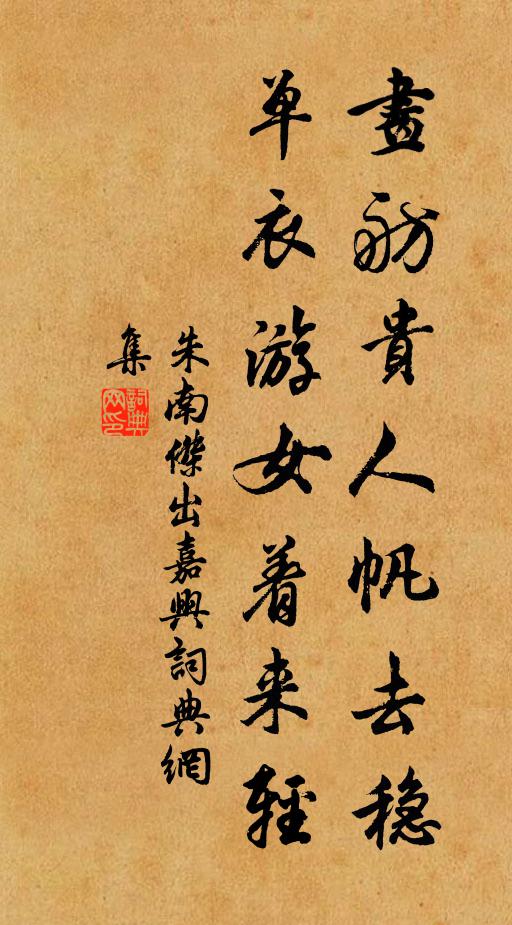 畫舫貴人帆去穏
单衣游女着来輕
朱南傑出嘉興詞典網
集
詞典
网印